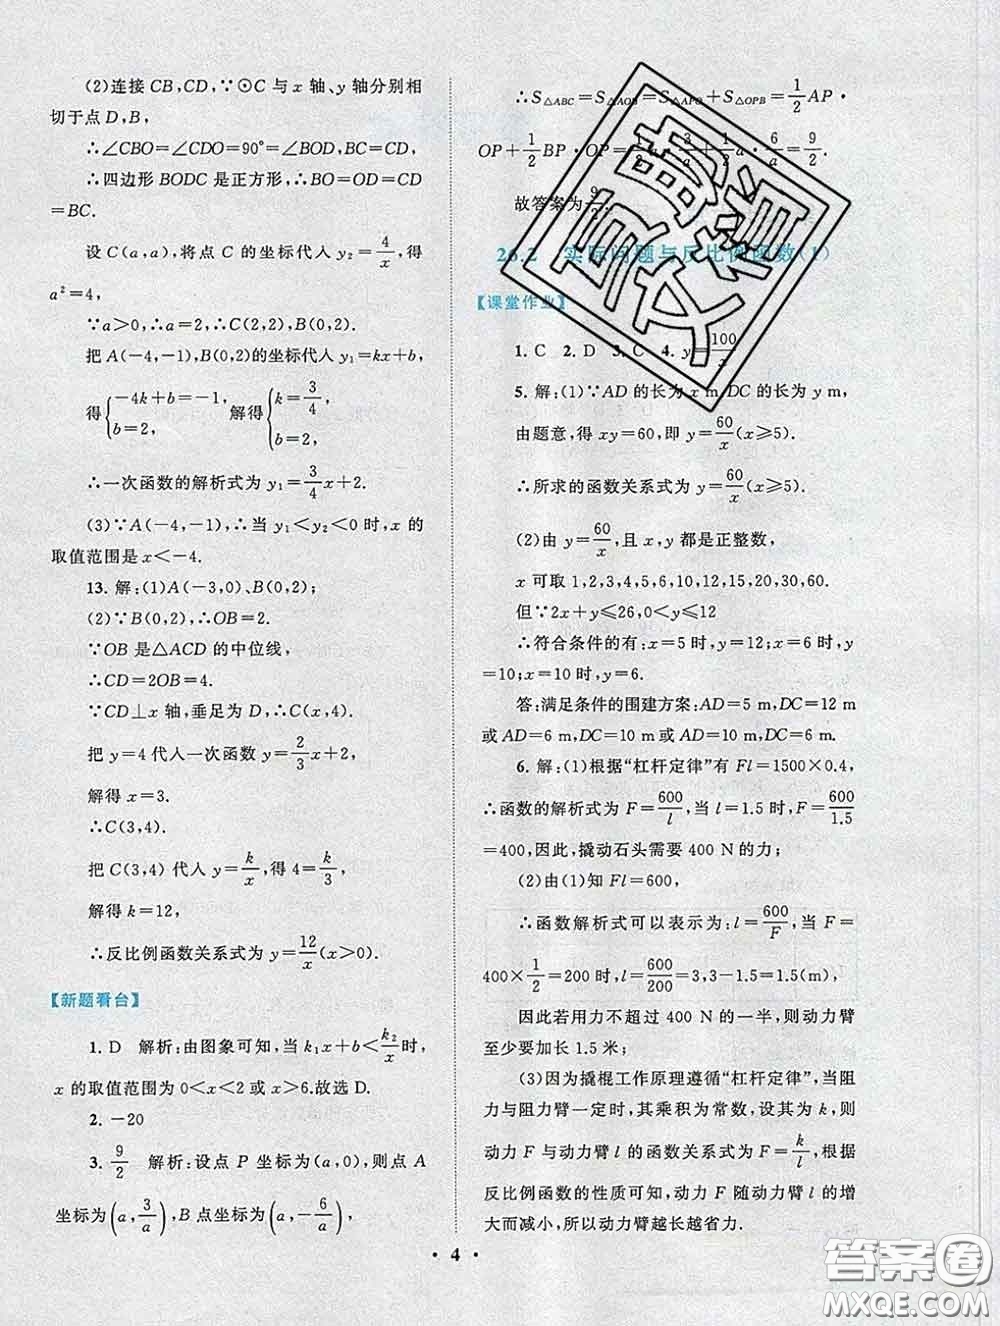 (2)连接 CB,CD,∵⊙C 与 x 轴、y 轴分别相
切于点 D,B,
∴∠CBO=∠CDO=90°=∠BOD,BC=CD,
∴四边形 BODC 是正方形,∴BO=OD=CD
=BC.
设 C(a,a),将点 C 的坐标代入 y₂=4/x,得
a²=4,
∵a>0,∴a=2,∴C(2,2),B(0,2).
把 A(-4,-1),B(0,2)的坐标代人 y₁=kx+b,
得{-4k+b=-1, b=2, 解得{k=3/4, b=2,
∴一次函数的解析式为 y₁=3/4x+2.
(3)∵A(-4,-1),∴当 y₁<y₂<0 时,x 的
取值范围是 x<-4.
13. 解:(1)A(-3,0),B(0,2);
(2)∵B(0,2),∴OB=2.
∵OB 是△ACD 的中位线,
∴CD=2OB=4.
∵CD⊥x 轴,垂足为 D,∴C(x,4).
把 y=4 代人一次函数 y=2/3x+2,
解得 x=3.
∴C(3,4).
把 C(3,4) 代人 y=k/x,得 4=k/3,
解得 k=12,
∴反比例函数关系式为 y=12/x(x>0).
【新题看台】
1. D 解析:由图象可知,当 k₁x+b<k₂/x时,
x 的取值范围为 0<x<2 或 x>6.故选 D.
2. -20
3. 9/2 解析:设点 P 坐标为(a,0),则点 A
坐标为(a,3/a),B 点坐标为(a,-6/a),
∴S△ABC=S△AOB=S△APO+S△OPB=1/2AP·
OP+1/2BP·OP=1/2a·3/a+1/2a·6/a=9/2.
故答案为9/2.
26.2 实际问题与反比例函数(1)
【课堂作业】
1. C 2. D 3. C 4. y=100/x
5. 解:(1)∵AD 的长为 x m,DC 的长为 y m,
由题意,得 xy=60,即 y=60/x(x≥5).
∴所求的函数关系式为 y=60/x(x≥5).
(2)由 y=60/x,且 x,y 都是正整数,
x 可取 1,2,3,4,5,6,10,12,15,20,30,60.
但∵2x+y≤26,0<y≤12
∴符合条件的有:x=5 时,y=12;x=6 时,y
=10;x=10 时,y=6.
答:满足条件的围建方案:AD=5 m,DC=12 m
或 AD=6 m,DC=10 m 或 AD=10 m,DC=6 m.
6. 解:(1)根据“杠杆定律”有 Fl=1500×0.4,
∴函数的解析式为 F=600/l,当 l=1.5 时,F=600/1.5
=400,因此,撬动石头需要 400 N 的力;
(2)由(1)知 Fl=600,
∴函数解析式可以表示为:l=600/F,当 F=
400×1/2=200 时,l=600/200=3,3-1.5=1.5(m),
因此若用力不超过 400 N 的一半,则动力臂
至少要加长 1.5 米;
(3)因为撬棍工作原理遵循“杠杆定律”,当阻
力与阻力臂一定时,其乘积为常数,设其为 k,则
动力 F 与动力臂 l 的函数关系式为 F=k/l,根据
反比例函数的性质可知,动力 F 随动力臂 l 的增
大而减小,所以动力臂越长越省力.
· 4 ·
答案圈
MXQE.COM